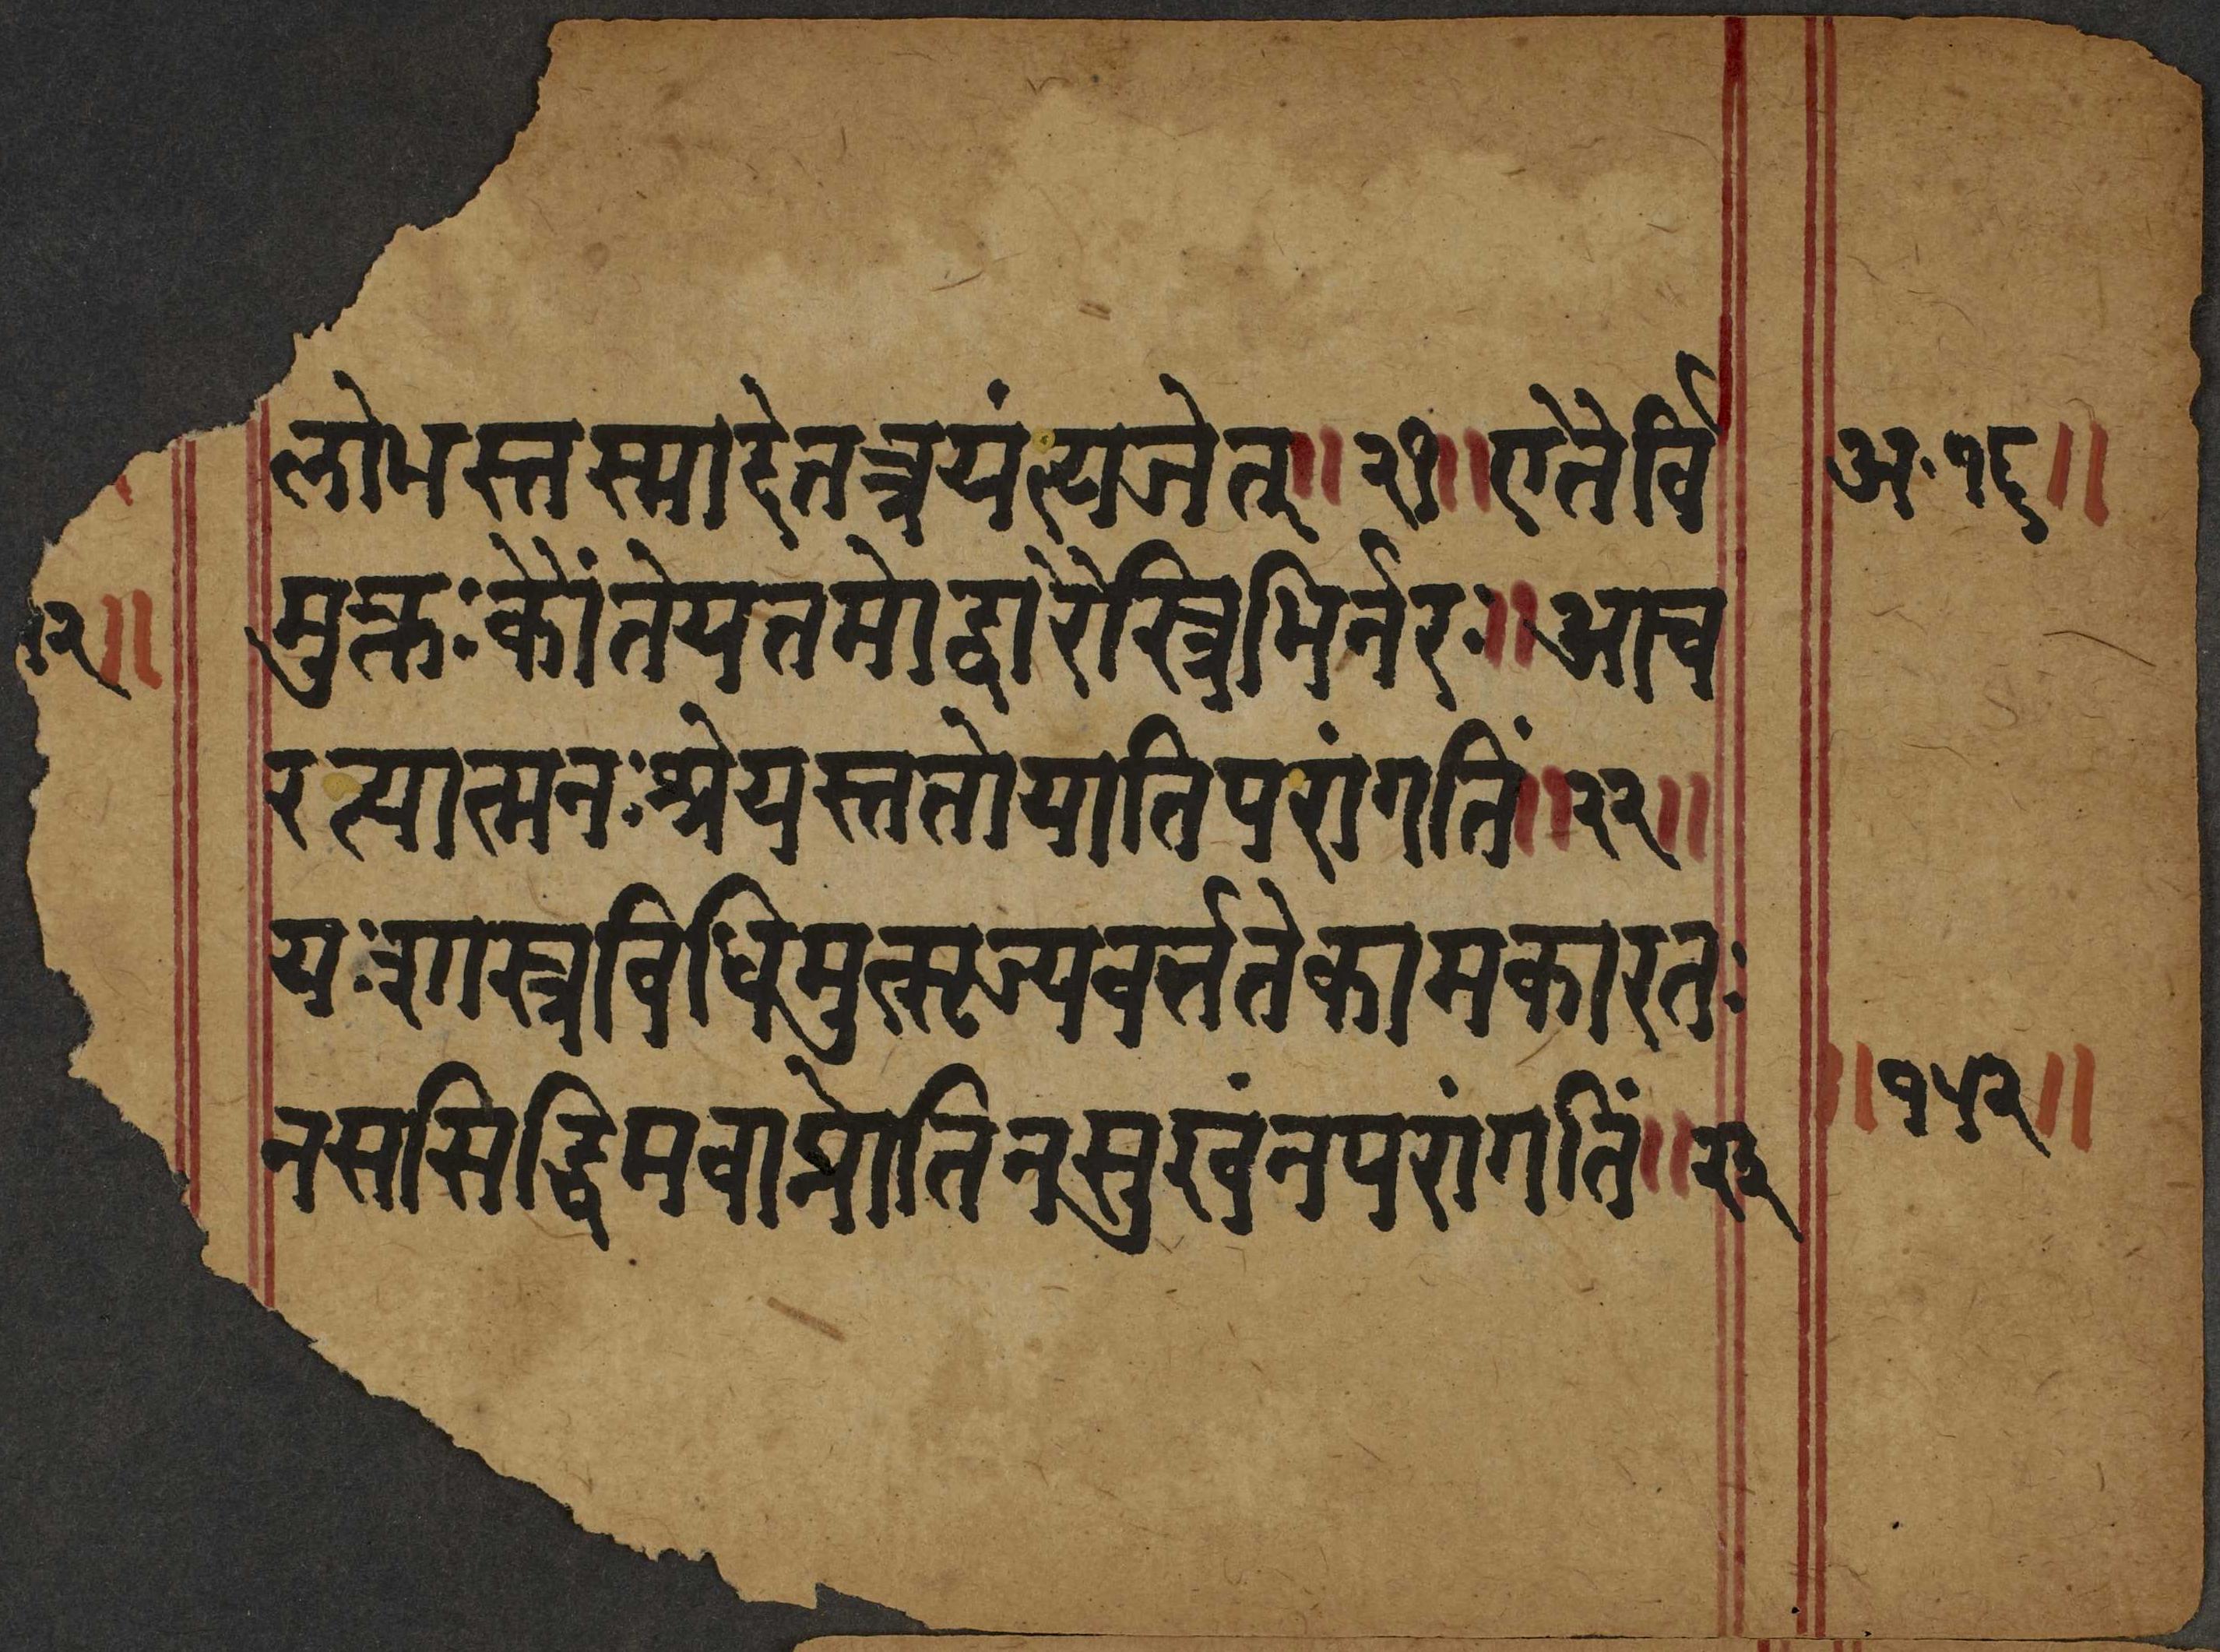 लोभस्तस्मादेतत्त्रयंत्यजेत्॥२१॥एतैर्वि
अ·१६॥
मुक्तःकौंतेयतमोद्वारैस्त्रिभिर्नरः॥आच
२॥
रत्यात्मनःश्रेयस्ततोयातिपरांगतिं॥२२॥
यःशास्त्रविधिमुत्सृज्यवर्त्ततेकामकारतः
नससिद्धिमवाप्नोतिनसुखंनपरांगतिं॥२३
॥१५२॥